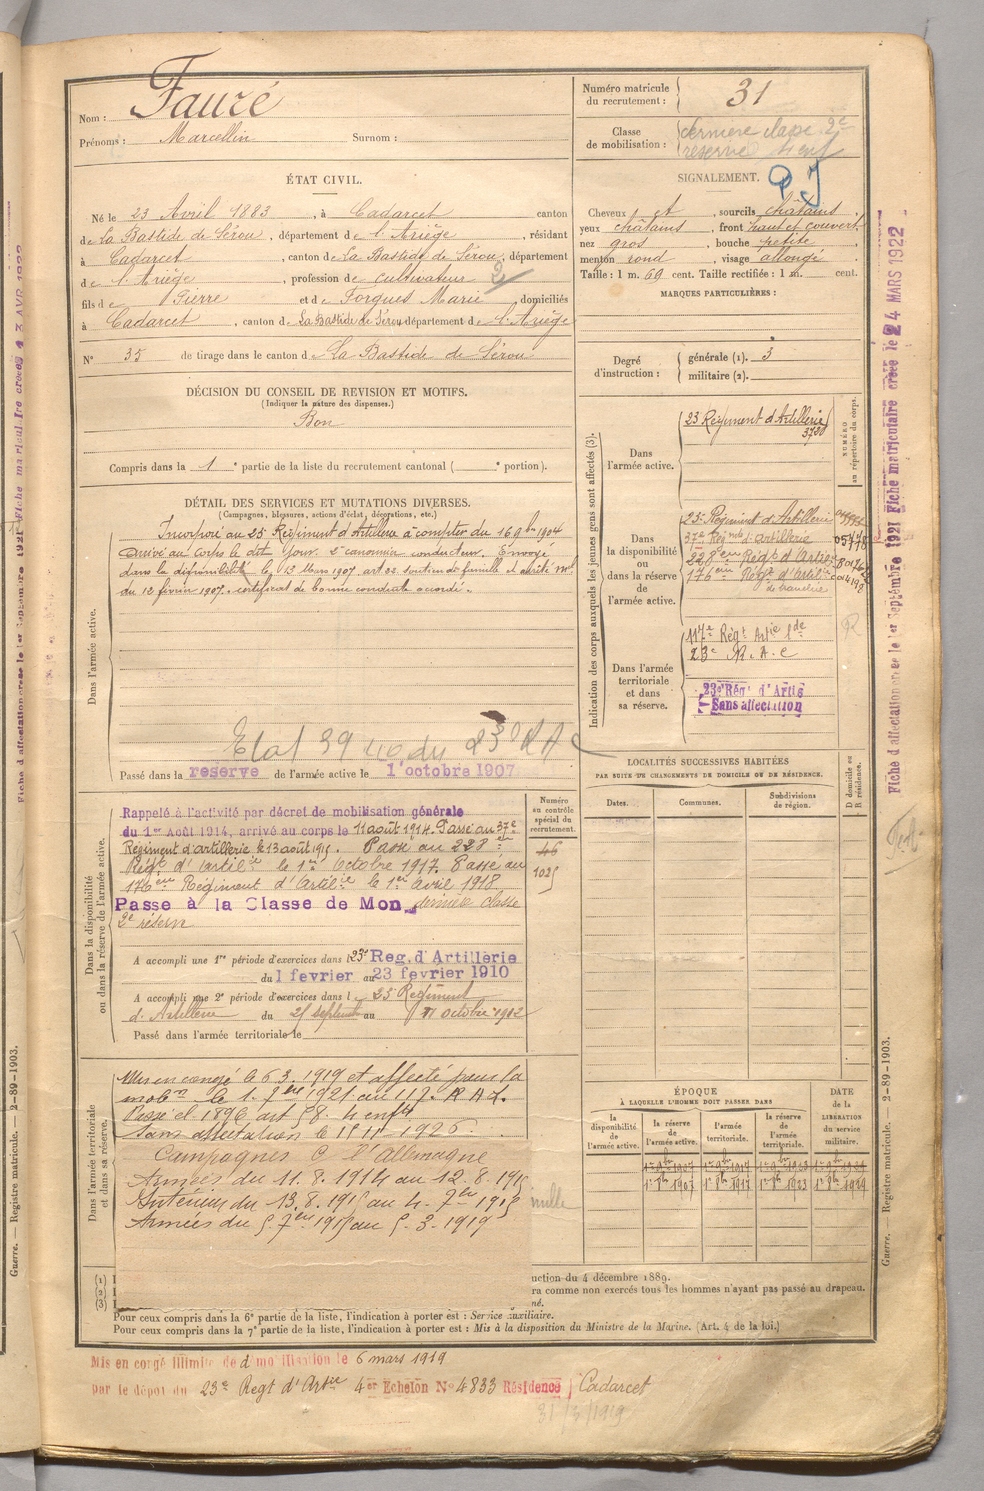 Nom : Fauré
Prénoms : Marcellin Surnom :
Numéro matricule
du recrutement : 31
Classe
de mobilisation : dernière classe 2e
réserve 4 enf
ÉTAT CIVIL.
Né le 23 Avril 1883, à Cadarcet canton
de La Bastide de Sérou, département de l'Ariège, résidant
à Cadarcet, canton de La Bastide de Sérou, département
de l'Ariège, profession de cultivateur 2
fils de Pierre et de Forgues Marie, domiciliés
à Cadarcet, canton de La Bastide de Sérou département de l'Ariège
N° 35 de tirage dans le canton de La Bastide de Sérou
SIGNALEMENT.
PJ
Cheveux et, sourcils châtains,
yeux châtains, front haut et couvert,
nez gros, bouche petite,
menton rond, visage allongé
Taille : 1 m. 69 cent. Taille rectifiée : 1 m. cent.
MARQUES PARTICULIÈRES :
Degré
d'instruction :
générale (1). 3
militaire (2).
DÉCISION DU CONSEIL DE REVISION ET MOTIFS.
(Indiquer la nature des dispenses.)
Bon
Compris dans la 1e partie de la liste du recrutement cantonal ( e portion).
DÉTAIL DES SERVICES ET MUTATIONS DIVERSES.
(Campagnes, blessures, actions d'éclat, décorations, etc.)
Dans l'armée active.
Incorporé au 23e Régiment d'Artillerie à compter du 16 9bre 1904
Arrivé au corps le dit jour. 2e canonnier conducteur. Envoyé
dans la disponibilité le 13 Mars 1907 art 22 soutien de famille et arrêté mel
du 12 février 1907. certificat de bonne conduite accordé.
Etat 39 40 du 23e RA
Passé dans la réserve de l'armée active le 1 octobre 1907
Indication des corps auxquels les jeunes gens sont affectés (3).
Dans
l'armée active.
23 Régiment d'Artillerie
3720
NUMÉRO
au répertoire du corps.
Dans
la disponibilité
ou
dans la réserve
de
l'armée active.
23e Régiment d'Artillerie
37e Régmt d'artillerie
228ème Régt d'Artie
176ème Régt d'Artie
de tranchée
Dans l'armée
territoriale
et dans
sa réserve.
117e Régt Artie lde
23e R.A.C
23e Rég' d'Artie
Sans affectation
LOCALITÉS SUCCESSIVES HABITÉES
PAR SUITE DE CHANGEMENTS DE DOMICILE OU DE RÉSIDENCE.
Dates. Communes. Subdivisions
de région.
D domicile ou
R résidence.
Dans la disponibilité
ou dans la réserve de l'armée active.
Numéro
au contrôle
spécial du
recrutement.
46
1025
Rappelé à l'activité par décret de mobilisation générale
du 1er Août 1914, arrivé au corps le 11 août 1914. Passé au 37e
Régiment d'artillerie le 13 août 1915. Passé au 228ème
Régt d'artilie le 1er Octobre 1917. Passé au
176ème Régiment d'Artilie le 1er Avril 1918
Passé à la Classe de Mon dernière classe
2e réserve
A accompli une 1re période d'exercices dans l 23e Reg. d'Artillerie
du 1 fevrier au 23 fevrier 1910
A accompli une 2e période d'exercices dans le 23 Régiment
d'Artillerie du 25 septembre au 11 octobre 1912
Passé dans l'armée territoriale le
Dans l'armée territoriale
et dans sa réserve.
Mis en congé le 6 3. 1919 et affecté pour la
mobon le 1. 7bre 1921 au 117. R A L.
Passé cl 1896 art 58. 4 enfts
Sans affectation le 15 11 1926
Campagnes C. l'Allemagne
Armées du 11. 8. 1914 au 12. 8. 1915
Intérieur du 13. 8. 1915 au 4. 7bre 1915
Armées du 5. 7bre 1915 au 5. 3. 1919
ÉPOQUE
À LAQUELLE L'HOMME DOIT PASSER DANS
la
disponibilité
de
l'armée active.
la réserve
de
l'armée active.
l'armée
territoriale.
la réserve
de
l'armée
territoriale.
DATE
de la
LIBÉRATION
du service
militaire.
(1)
(2)
(3)
uction du 4 décembre 1889.
ra comme non exercés tous les hommes n'ayant pas passé au drapeau.
né.
Pour ceux compris dans la 6e partie de la liste, l'indication à porter est : Service auxiliaire.
Pour ceux compris dans la 7e partie de la liste, l'indication à porter est : Mis à la disposition du Ministre de la Marine. (Art. 4 de la loi.)
Mis en congé illimité de démobilisation le 6 mars 1919
par le dépôt du 23e Regt d'Artie 4er Echelon N° 4833 Résidence Cadarcet
31/3/1919
Fiche d'affectation créée le 1er Septembre 1921 Fiche matriculaire créée le 24 MARS 1922
Guerre. — Registre matricule. — 2-89-1903.
Guerre. — Registre matricule. — 2-89-1903.